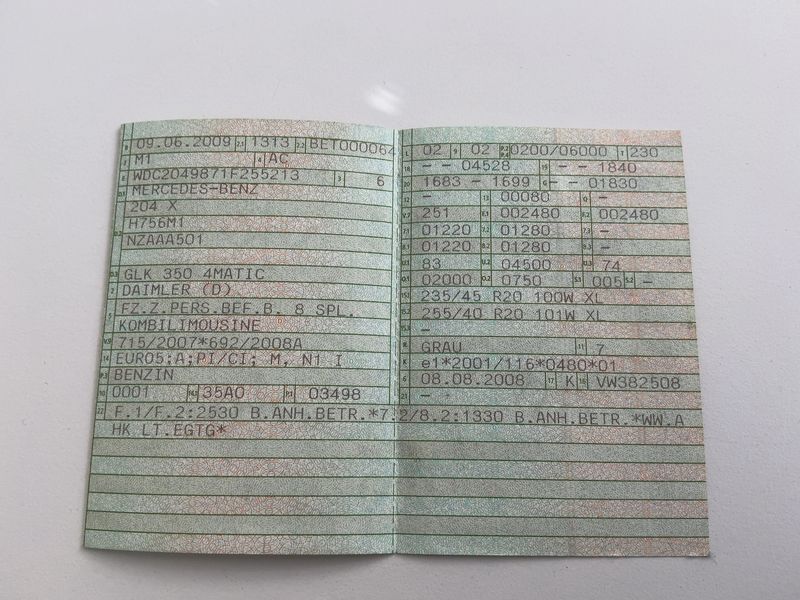 B 09.06.2009 2.1 1313 2.2 BET000064
J M1 4 AC
E WDC2049871F255213 3 6
D.1 MERCEDES-BENZ
204 X
D.2 H756M1
NZAAA501
D.3 GLK 350 4MATIC
2 DAIMLER (D)
5 FZ.Z.PERS.BEF.B. 8 SPL.
KOMBILIMOUSINE
V.9 715/2007*692/2008A
14 EURO5;A;PI/CI; M, N1 I
P.3 BENZIN
10 0001 14.1 35A0 P.1 03498
L 02 9 02 P.2 P.4 0200/06000 T 230
18 - - 04528 19 - - 1840
20 1683 - 1699 G - - 01830
12 - 13 00080 Q -
V.7 251 F.1 002480 F.2 002480
7.1 01220 7.2 01280 7.3 -
8.1 01220 8.2 01280 8.3 -
U.1 83 U.2 04500 U.3 74
O.1 02000 O.2 0750 S.1 005 S.2 -
15.1 235/45 R20 100W XL
15.2 255/40 R20 101W XL
15.3 -
R GRAU 11 7
K e1*2001/116*0480*01
6 08.08.2008 17 K 16 VW382508
21 -
22 F.1/F.2:2530 B.ANH.BETR.*7.2/8.2:1330 B.ANH.BETR.*WW.A
HK LT.EGTG*